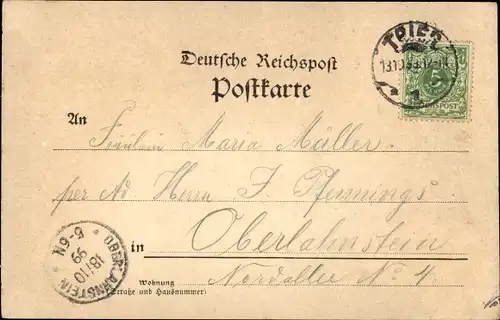 TRIER
1
Deutsche Reichspost
Postkarte
5
REICHSPOST
An
Fräulein Maria Müller
per Ad Herrn J. Pfennings
in Oberlahnstein
Wohnung
(Straße und Hausnummer)
Nordallee No 4
OBERLAHNSTEIN
18/10
99
6-6N